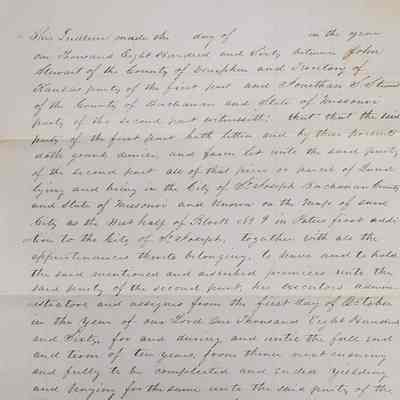 This Indenture made the day of in the year
one Thousand Eight Hundred and Sixty between John
Stewart of the County of Doniphan and Territory of
Kansas party of the first part and Jonathan S
of the County of Buchanan and State of Missouri
party of the second part witnesseth: that that the said
party of the first part hath letten and by these presents
doth grant, demise, and farm let unto the said party
of the second part all of that piece or parcel of Land
lying and being in the City of St Joseph Buchanan County
and State of Missouri and known on the Map of said
City as the West half of Block No 9 in Patee first addi
tion to the City of St Joseph, together with all the
appertenances thereto belonging, to have and to hold
the said mentioned and described premises unto the
said party of the second part, his executors admin
istrators and assigns from the first day of October
in the year of our Lord One Thousand Eight Hundred
and Sixty for and during and untill the full end
and term of ten years, from thence next ensuing
and fully to be completed and ended yielding
and paying for the same unto the said party of the